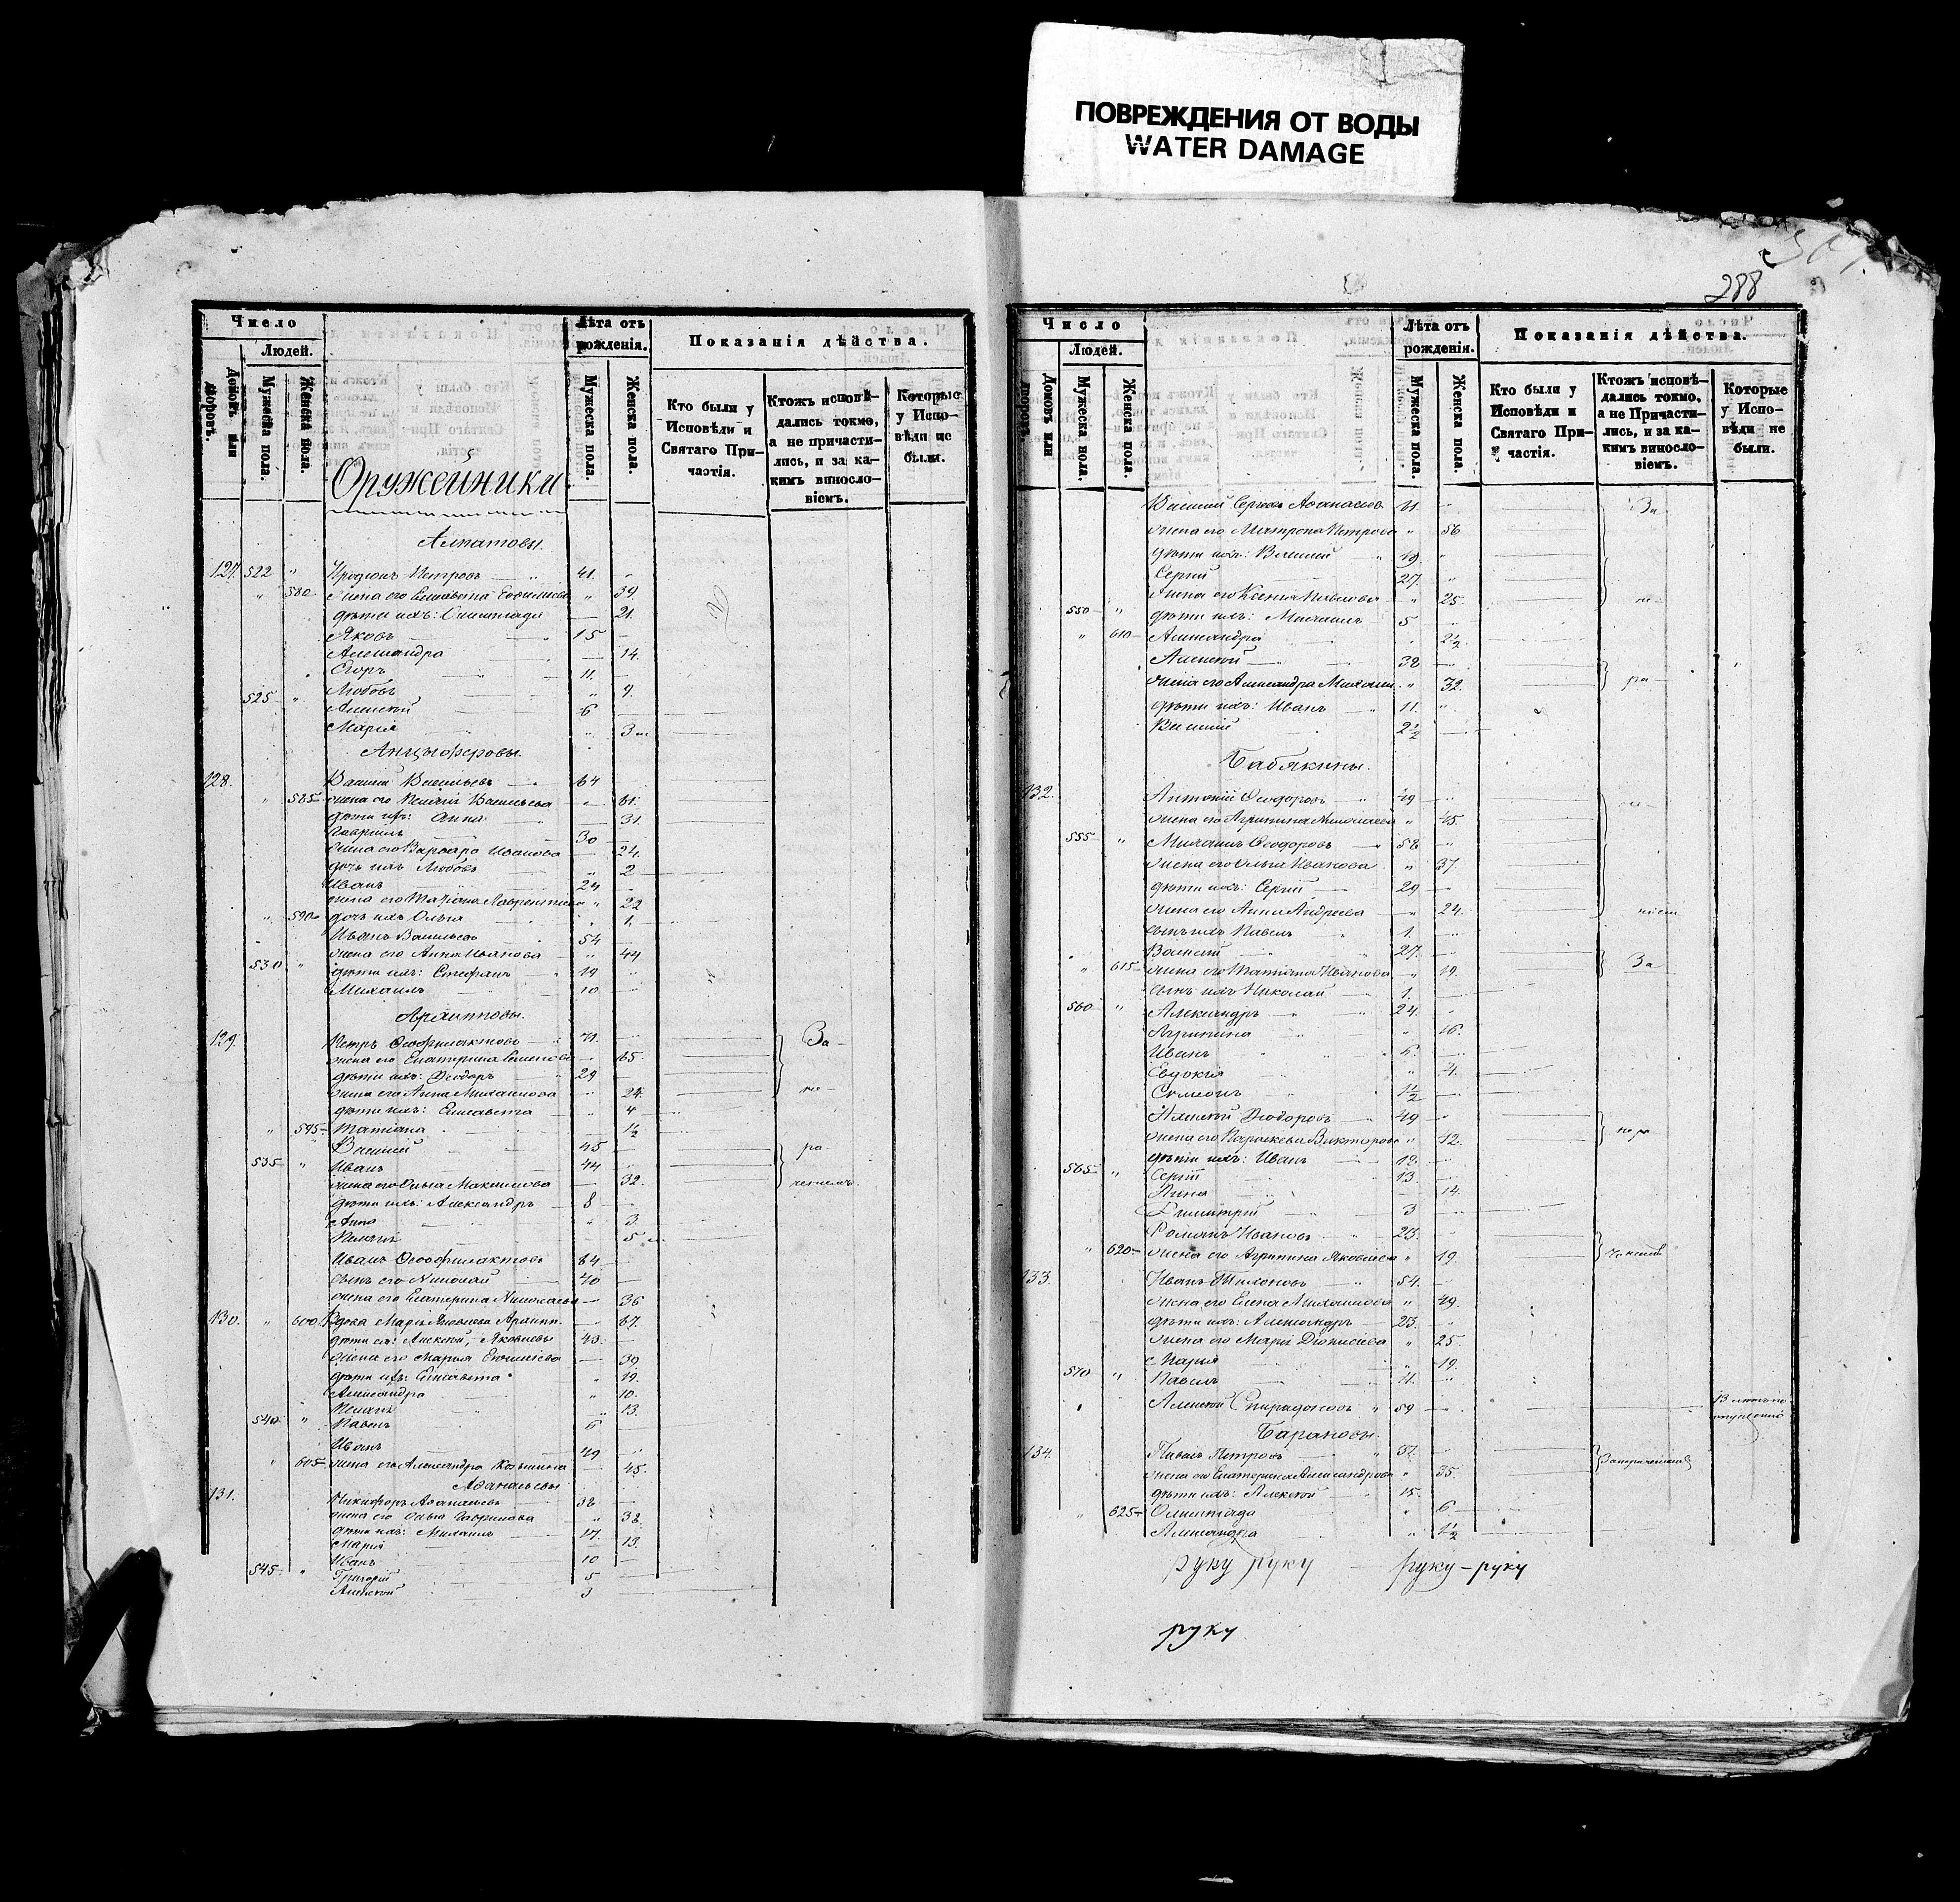 ПОВРЕЖДЕНИЯ ОТ ВОДЫ
WATER DAMAGE
Число
Людей.
Домовъ или дворовъ.
Мужеска пола.
Женска пола.
Лѣта отъ рожденія.
Мужеска пола.
Женска пола.
Показанія дѣйства.
Кто были у Исповѣди и Святаго Причастія.
Ктожъ исповѣдались токмо, а не причастились, и за какимъ винословіемъ.
Которые у Исповѣди не были.
Оружейники
Алпатовы.
127. 522 " Иродіонъ Петровъ 41. "
" 580 жена его Елисавета " 39.
дѣти ихъ: Олимпіада 21.
Яковъ 15
Александра 14.
Егоръ 11.
525 " Любовь " 9.
Алексѣй 6
Марія " 3
Анцыферовы.
128. Василій Васильевъ 64
" 585 жена его Пелагія Васильева " 61.
дѣти ихъ: Анна 31.
Гавріилъ 30
жена его Варвара Иванова 24.
дочь ихъ Любовь " 2
Иванъ 24
жена его Татіана Лаврентьева " 22
" 590 дочь ихъ Ольга " 1.
Иванъ Васильевъ 54
жена его Анна Иванова " 44
530 " дѣти ихъ: Стефанъ 19 "
Михаилъ 10
Архиповы.
129. Петръ Ѳеофилактовъ 71. За
жена его Екатерина Семенова 65.
дѣти ихъ: Ѳеодоръ 29
жена его Анна Михаилова " 24. не
дѣти ихъ: Елисавета " 4
" 595 Татіана 1½
Василій 45 ра
535 " Иванъ 44
жена его Ольга Максимова 32.
дѣти ихъ: Александръ 8
Анна " 3.
5
Иванъ Ѳеофилактовъ 64
сынъ его Николай 40
жена его Екатерина Николаева 36
130. " 600 Вдова Марія Яковлева 67.
дѣти ея: Алексѣй, Яковлевы 43.
жена его Марѳа 39.
дѣти ихъ: Елисавета 19.
Александра " 10.
" 13.
540 " Павелъ 6
Иванъ 49
" 605 жена его Александра Козьмина 45.
Аѳанасьевы
131. Никифоръ Аѳанасьевъ 38
жена его Ольга Гаврилова " 38.
дѣти ихъ: Михаилъ 17.
Марія 13.
Иванъ 10
545 " Григорій 5
Алексѣй 3
288
Число
Людей.
Домовъ или дворовъ.
Мужеска пола.
Женска пола.
Лѣта отъ рожденія.
Мужеска пола.
Женска пола.
Показанія дѣйства.
Кто были у Исповѣди и Святаго Причастія.
Ктожъ исповѣдались токмо, а не Причастились, и за какимъ винословіемъ.
Которые у Исповѣди не были.
Василій Сергѣевъ Аѳанасьевъ 61. За
жена его Матрона Петрова " 56
дѣти ихъ: Василій
Сергій 27
жена его Ксенія Павлова " 25. не
550 " дѣти ихъ: Михаилъ 5
" 610 Александра 2½
Алексѣй 38
жена его Александра " 32. ра
дѣти ихъ: Иванъ 11.
Василій 2½
Бабякины.
132. Антоній Ѳеодоровъ 49
жена его Агрипина Николаева " 45.
555 " Михаилъ Ѳеодоровъ 58
жена его Ольга Иванова " 37
дѣти ихъ: Сергій 29
жена его Анна Андреева " 24.
сынъ ихъ Павелъ 1.
Василій 27.
" 615 жена его Татіана Иванова " 19. За
сынъ ихъ Николай 1.
560 " Александръ 24.
Агрипина " 16.
Иванъ 6.
Евдокія " 4.
Симеонъ 1½
Алексѣй Ѳеодоровъ 49
жена его Параскева Викторова " 42.
дѣти ихъ: Иванъ 19.
565 " Сергій 13.
Анна 14.
Димитрій 3
Романъ Ивановъ 23.
" 620 жена его Агрипина Яковлева " 19.
133. Иванъ Тихоновъ 54.
жена его Елена Михаилова " 49.
дѣти ихъ: Александръ 23.
жена его Марія Діонисіева " 25
Марія " 19.
570 " Павелъ 11.
Алексѣй Спиридоновъ 59
Барановы.
134. Павелъ Петровъ 37.
жена его Екатерина Александрова " 35.
дѣти ихъ: Алексѣй 15.
" 625 Олимпіада " 6
Александра " 1½
руку руку руку-руку
руку